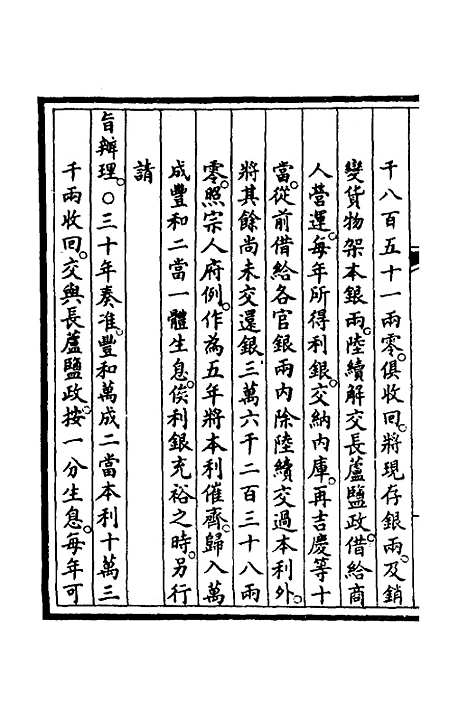 千八百五十一兩零。俱收回。將現存銀兩。及銷
變貨物架本銀兩。陸續解交長蘆鹽政。借給商
人營運。每年所得利銀。交納內庫。再吉慶等十
當。從前借給各官銀兩內除陸續交過本利外。
將其餘尚未交還銀三萬六千二百三十八兩
零。照宗人府例。作為五年將本利催齊。歸入萬
成豐和二當一體生息。俟利銀充裕之時。另行
請
旨辦理。○三十年奏准。豐和萬成二當本利十萬三
千兩收回。交與長蘆鹽政。按一分生息。每年可